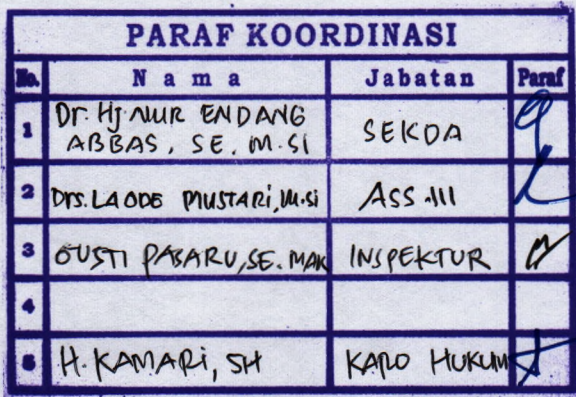 PARAF KOORDINASI
No. Nama Jabatan Paraf
1 Dr. Hj. NUR ENDANG ABBAS, SE. M.SI SEKDA
2 Drs. LA ODE MUSTARI, M.Si ASS.III
3 GUSTI PASARU, SE. MAK INSPEKTUR
4
5 H. KAMARI, SH KARO HUKUM